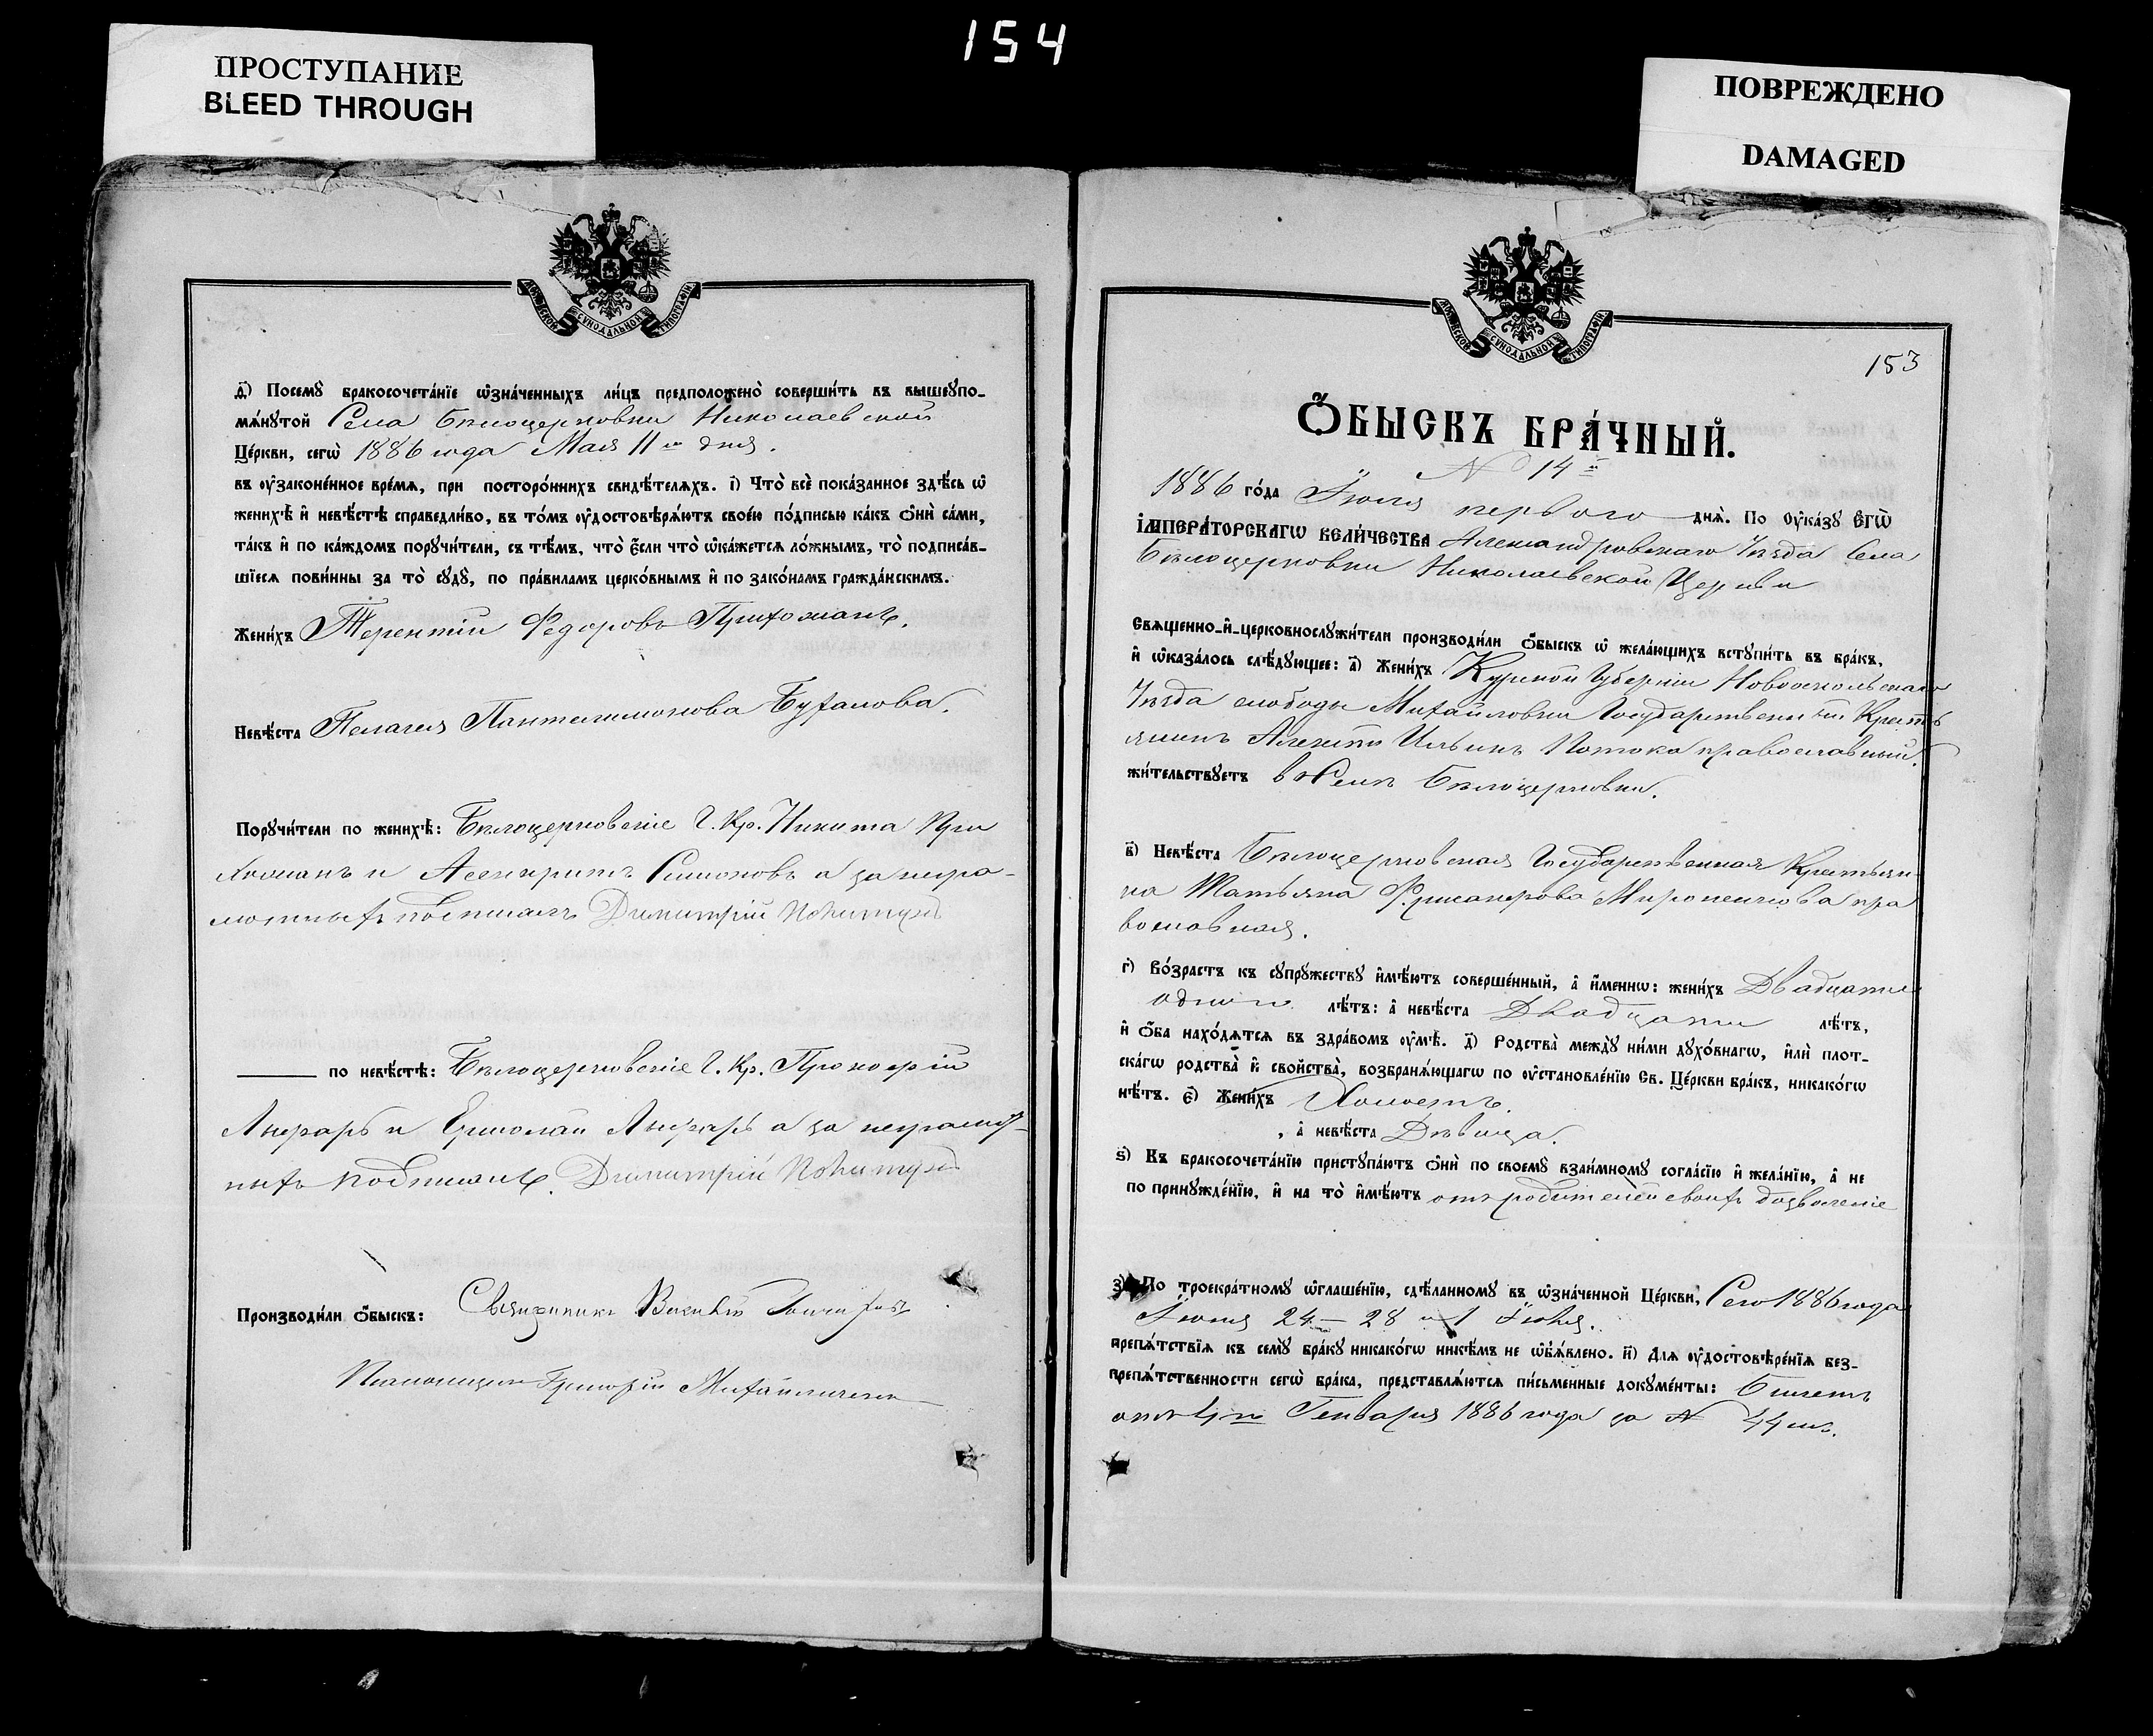 154
ПРОСТУПАНИЕ
BLEED THROUGH
ПОВРЕЖДЕНО
DAMAGED
МОСКОВСКОЙ СѴНОДАЛЬНОЙ ТИПОГРАФІИ
д҃і) Посемꙋ̀ бракосочета́нїе ѡ҆зна́ченныхъ ли́цъ предположено̀ соверши́ть въ вышеꙋпо-
мѧ́нꙋтой Села Бѣлоцерковки Николаевской
Це́ркви, сегѡ̀ 1886 года Мая 11го дня.
въ ᲂу҆законе́нное вре́мѧ, при посторо́ннихъ свидѣ́телѧхъ. і҃) Что̀ всѐ пока́занное здѣ́сь ѡ҆
женихѣ̀ и҆ невѣ́стѣ справедли́во, въ то́мъ ᲂу҆достовѣрѧ́ютъ свое́ю по́дписью ка́къ ѻ҆нѝ са́ми,
та́къ и҆ по ка́ждомъ порꙋчи́тели, съ тѣ́мъ, что̀ є҆́сли что̀ ѡ҆ка́жетсѧ ло́жнымъ, то̀ подписа́в-
шїесѧ пови́нны за то̀ сꙋдꙋ̀, по пра́виламъ церко́внымъ и҆ по зако́намъ гражда́нскимъ.
Жени́хъ Терентій Федоровъ Прихожанъ.
Невѣ́ста Пелагея Пантелимонова Бухалова.
Порꙋчи́тели по женихѣ̀: Бѣлоцерковскіе Г. Кр. Никита При
хожанъ и Асенкритъ Симоновъ а за негра-
мотныхъ подписалъ Димитрій
по невѣ́стѣ: Бѣлоцерковскіе Г. Кр. Прокофій
и Ермолай а за неграмот-
ныхъ подписалъ. Димитрій
Производи́ли ѻ҆́быскъ: Священникъ Василій
Псаломщикъ Григорій Михайличенко
МОСКОВСКОЙ СѴНОДАЛЬНОЙ ТИПОГРАФІИ
153
Ѻ҆́БЫСКЪ БРА́ЧНЫЙ.
N 14й
1886 го́да Іюля первого днѧ̀. По ᲂу҆ка́зꙋ Є҆гѡ̀
І҆мпера́торскагѡ Вели́чества Александровскаго Уѣзда Села
Бѣлоцерковки Николаевской Церкви
Свѧще́нно-и҆-церковнослꙋжи́тели производи́ли ѻ҆́быскъ ѡ҆ жела́ющихъ встꙋпи́ть въ бра́къ,
и҆ ѡ҆каза́лось слѣ́дꙋющее: а҃) Жени́хъ Курской Губерніи Новооскольскаго
Уѣзда слободы Михайловки Государственный Кресть
янинъ Алексѣй Ильинъ Потока православный.
жи́тельствꙋетъ въ Селѣ Бѣлоцерковки.
в҃) Невѣ́ста Бѣлоцерковская Государственная Крестьян
ка Татьяна Миропенкова пра
вославная.
г҃) Во́зрастъ къ сꙋпрꙋ́жествꙋ и҆мѣ́ютъ соверше́нный, а҆ и҆́меннѡ: жени́хъ Двадцати
одного лѣ́тъ: а҆ невѣ́ста Двадцати лѣ́тъ,
и҆ ѻ҆́ба нахо́дѧтсѧ въ здра́вомъ ᲂу҆мѣ̀. д҃) Родства̀ междꙋ̀ ни́ми дꙋхо́внагѡ, и҆лѝ плот-
ска́гѡ родства̀ и҆ сво́йства̀, возбранѧ́ющагѡ по ᲂу҆становле́нїю Св. Це́ркви бра́къ, никако́гѡ
нѣ́тъ. є҃) Жени́хъ Холостъ.
, а҆ невѣ́ста Дѣвица.
ѕ҃) Къ бракосочета́нїю пристꙋпа́ютъ ѻ҆нѝ по своемꙋ̀ взаи́мномꙋ согла́сїю и҆ жела́нїю, а҆ не
по принꙋжде́нїю, и҆ на то̀ и҆мѣ́ютъ отъ родителей своихъ дозволеніе
з҃) По троекра́тномꙋ ѡ҆глаше́нїю, сдѣ́ланномꙋ въ ѡ҆зна́ченной Це́ркви, Сего 1886 года
Іюня 24 — 28 и 1 Іюля.
препѧ́тствїѧ къ семꙋ̀ бра́кꙋ никако́гѡ никѣ́мъ не ѡ҆бъѧ́влено. и҃) Длѧ ᲂу҆достовѣре́нїѧ без-
препѧ́тственности сегѡ̀ бра́ка, представлѧ́ютсѧ пи́сьменные докꙋме́нты: Билетъ
отъ 4го Генваря 1886 года за N 44мъ.